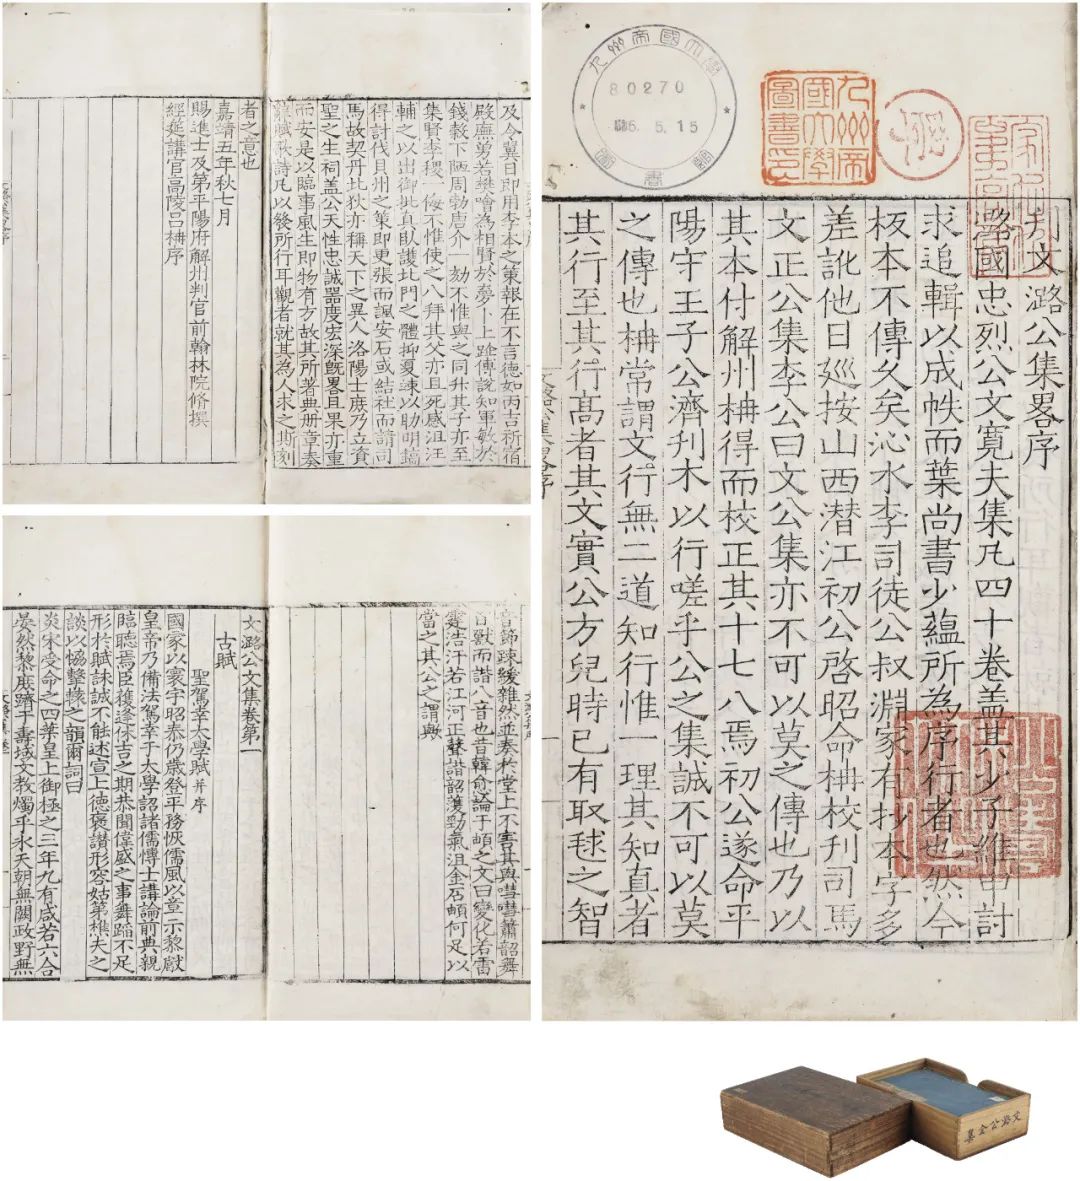 刋文潞公集畧序
潞國忠烈公文寛夫集凡四十卷盖其少子維申討
求追輯以成帙而葉尚書少蘊所為序行者也然今
板本不傳乆矣沁水李司徒公叔淵家有抄本字多
差訛他日廵按山西潜江初公啓昭命柟校刋司馬
文正公集李公曰文公集亦不可以莫之傳也乃以
其本付解州柟得而校正其十七八焉初公遂命平
陽守王子公濟刋木以行嗟乎公之集誠不可以莫
之傳也柟常謂文行無二道知行惟一理其知真者
其行至其行髙者其文實公方兒時已有取毬之智
九州帝國大學
80270
5.15
圖書
九州帝國大學圖書印
及令冀日即用李本之策報在不言德如丙吉祈宿
殿廡勇若樊噲為相賢於夢卜上跧傅說知軍敏於
錢穀下陋周勃唐介一劾不惟與之同升其子亦至
集賢李稷一侮不惟使之八拜其父亦且死感沮汪
輔之以出御批真臥護北門之體抑夏竦以助明鎬
得討伐貝州之策即更張而諷安石或結社而請司
馬故契丹北狄亦稱天下之異人洛陽士庻乃立資
聖之生祠盖公天性忠誠器度宏深旣畧且果亦重
而安是以臨事風生即物有方故其所著典册章奏
辭賦歌詩凡以發所行耳觀者就其為人求之斯刻
者之意也
嘉靖五年秋七月
賜進士及第平陽府解州判官前翰林院修撰
經筵講官高陵呂柟序
音節踈緩雜然並奏於堂上不害其與嘒嘒簫韶舞
百獸而諧八音也昔韓愈論于頔之文曰變化若雷
霆浩汗若江河正聲諧韶濩勁氣沮金石頔何足以
當之其公之謂歟
文潞公文集卷第一
古賦
聖駕幸太學賦并序
國家以寰宇昭泰仍歲登平務恢儒風以章示黎獻
皇帝乃備法駕幸于太學詔諸儒博士講論前典親
臨聽焉臣復逢休吉之期恭聞偉盛之事舞蹈不足
形於賦詠誠不能述宣上德褒讃形容姑苐樵夫之
談以恊擊轅之韻爾詞曰
炎宋受命之四葉皇上御極之三年九有咸若六合
晏然黎庻躋于壽域文教燭乎永天朝無闕政野無
文潞公全集